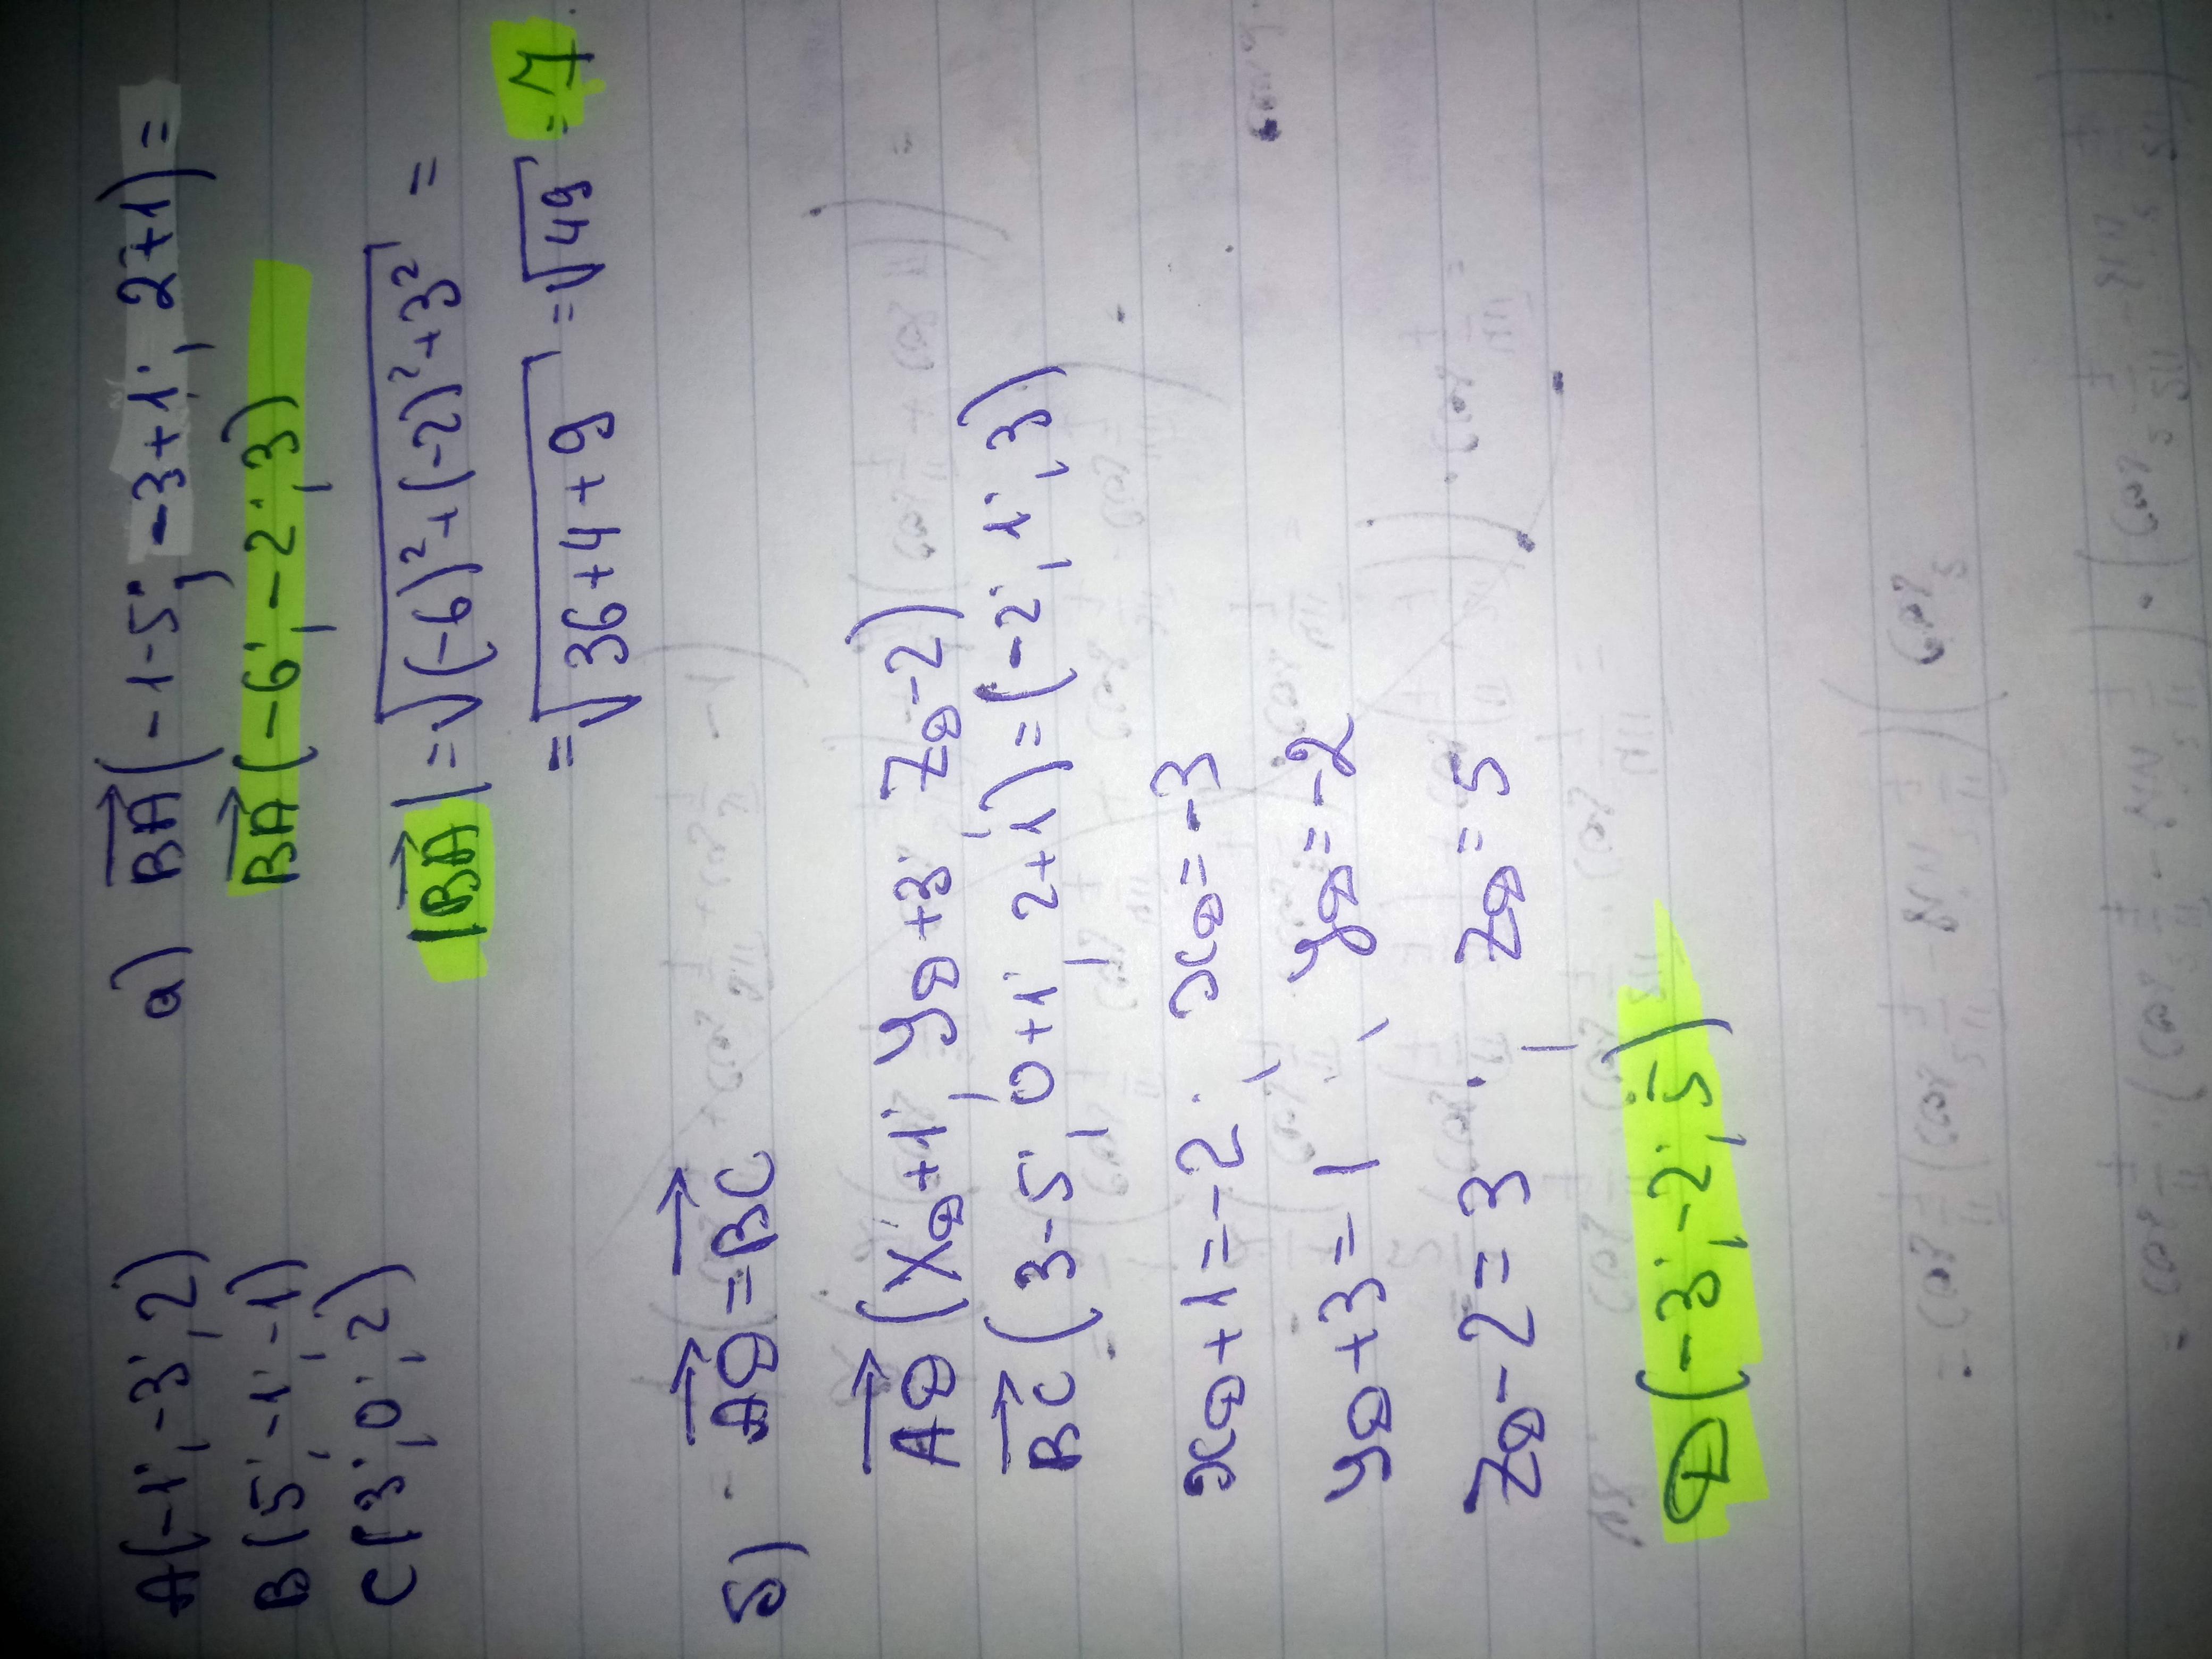 A(-1; -3; 2)
B(5; -1; -1)
C(3; 0; 2)
а) BA(-1-5; -3+1; 2+1) =
BA(-6; -2; 3)
|BA| = √(-6)²+(-2)²+3² =
= √36+4+9 = √49 = 7
б) AD = BC
AD(x_D+1; y_D+3; z_D-2)
BC(3-5; 0+1; 2+1) = (-2; 1; 3)
x_D+1=-2; x_D=-3
y_D+3=1; y_D=-2
z_D-2=3; z_D=5
D(-3; -2; 5)